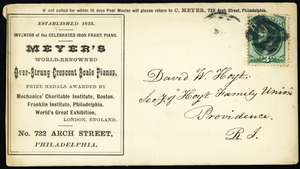 If not called for within 10 days Post Master will please return to C. MEYER, 722 Arch Street, Philadelphia.
ESTABLISHED 1823.
INVENTOR of the CELEBRATED IRON FRAME PIANO.
MEYER'S
WORLD-RENOWNED
Over-Strung Crescent Scale Pianos,
PRIZE MEDALS AWARDED BY
Mechanics' Charitable Institute, Boston.
Franklin Institute, Philadelphia.
World's Great Exhibition,
LONDON, ENGLAND.
No. 722 ARCH STREET,
PHILADELPHIA.
David W. Hoyt.
Sec'y of "Hoyt Family Union"
Providence.
R. I.
3